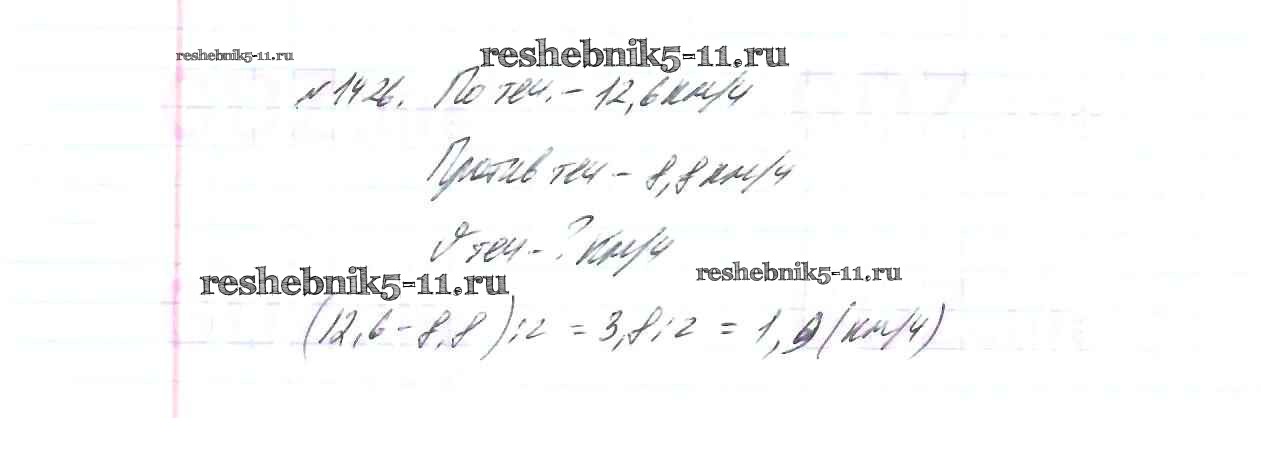 reshebnik5-11.ru
reshebnik5-11.ru
№1426. По теч. - 12,6 км/ч
Против теч - 8,8 км/ч
υ теч - ? км/ч
reshebnik5-11.ru
reshebnik5-11.ru
(12,6 - 8,8) : 2 = 3,8 : 2 = 1,9 (км/ч)